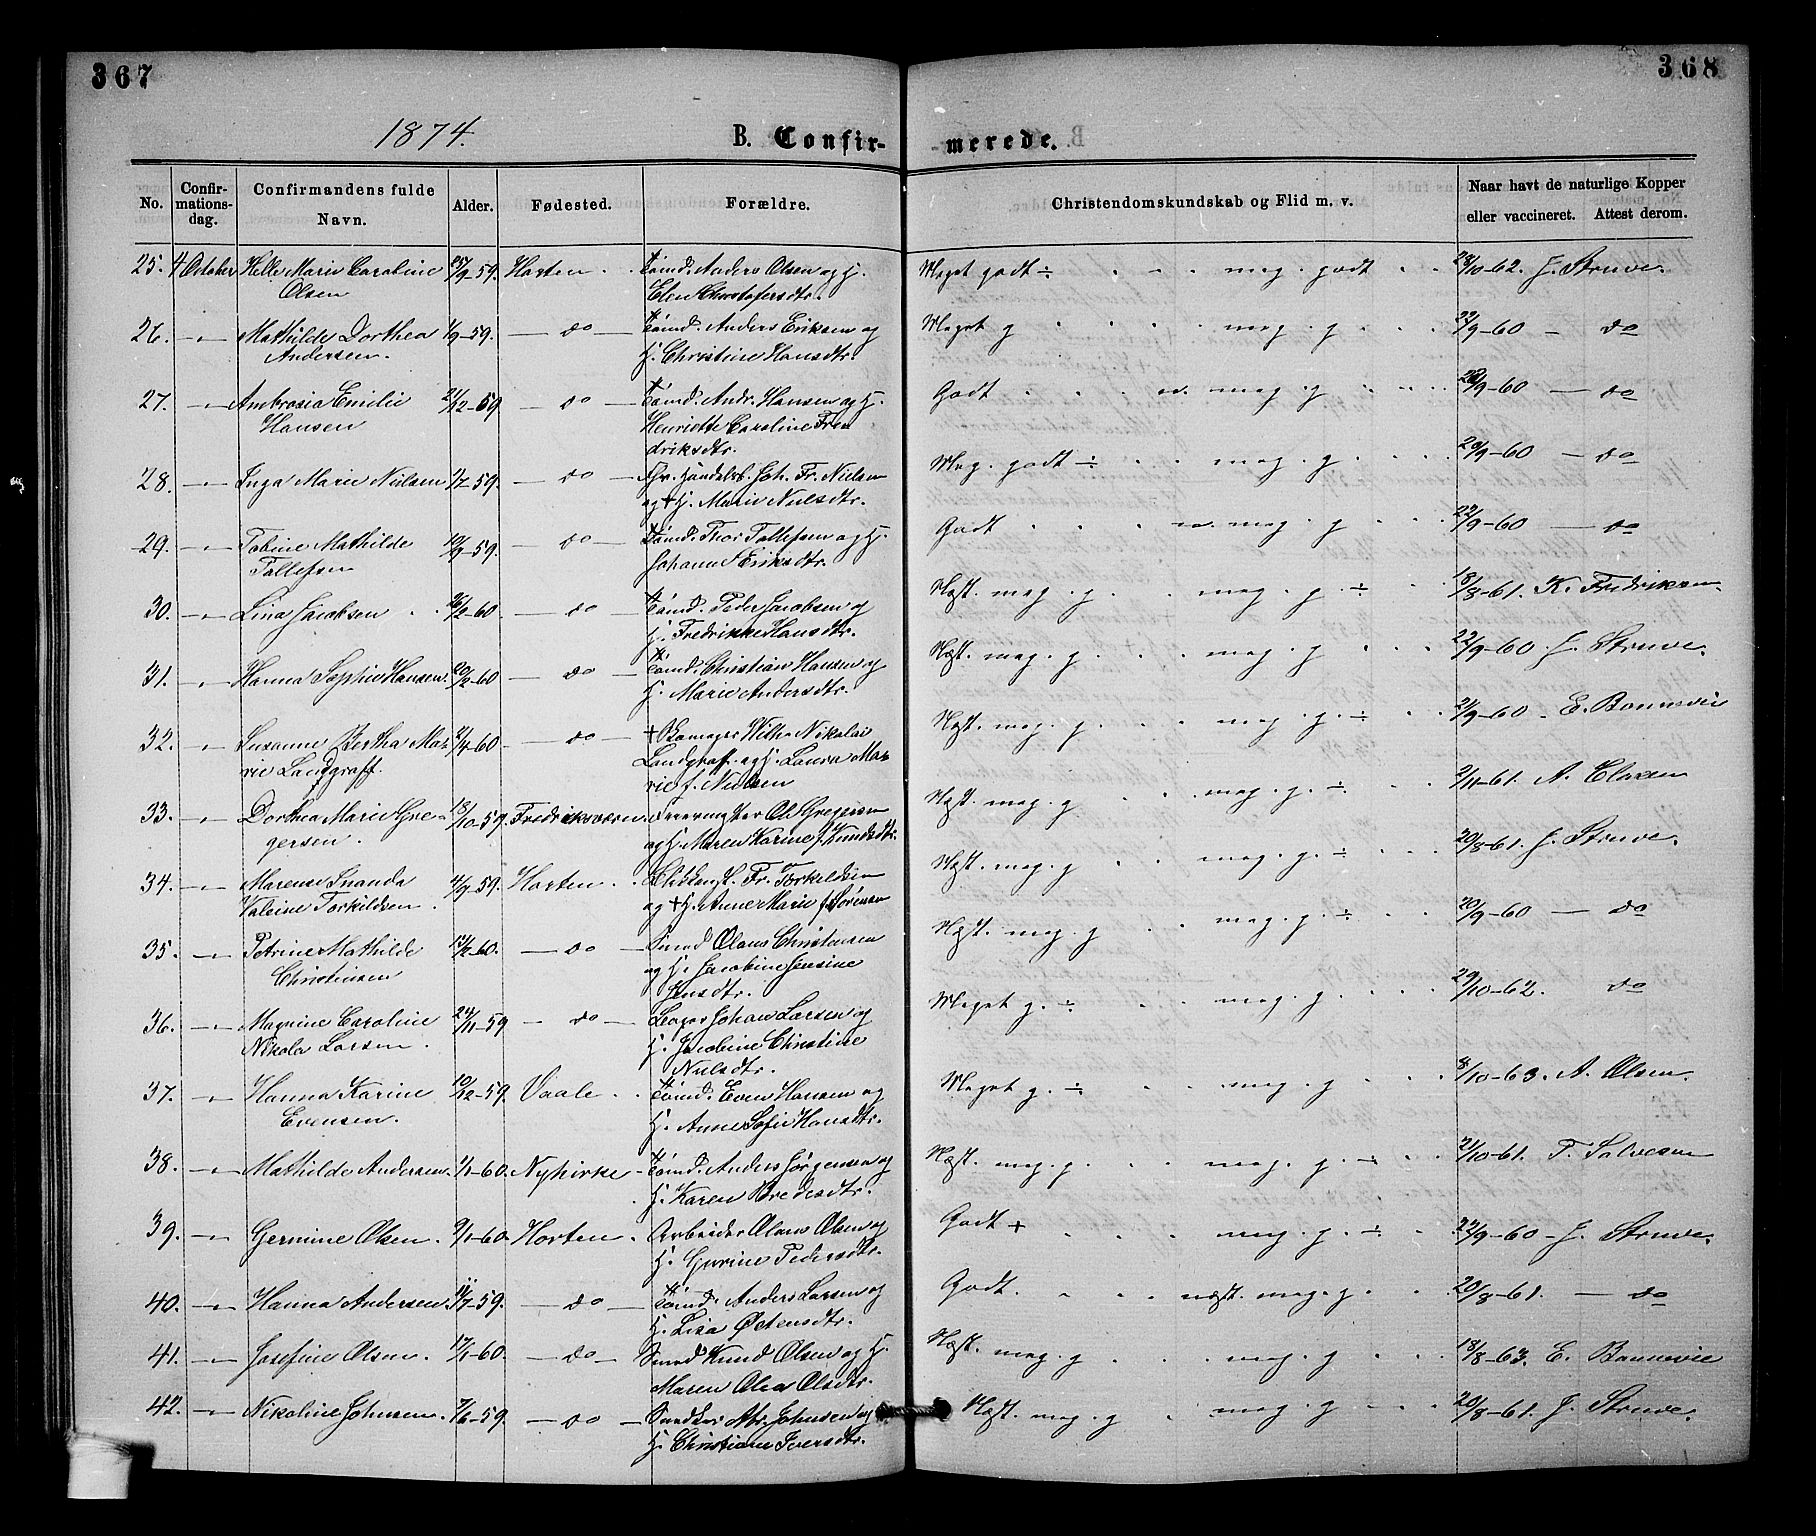 367
368
1874.
B. Confir-
merede.
No.
Confir-
mations-
dag.
Confirmandens fulde
Navn.
Alder.
Fødested.
Forældre.
Christendomskundskab og Flid m. v.
Naar havt de naturlige Kopper
eller vaccineret. Attest derom.
25. 4 October Helle Marie Caroline 25/9-59. Horten Tømd. Anders Olsen og H. Meget godt ÷ meg. godt 28/10-62. J. Struve.
Olsen Elen Christofersdtr.
26. Mathilde Dorthea 1/9-59. do Tømd. Anders Eriksen og Meget g meg. g 22/9-60 do
Andersen. H. Christine Hansdtr.
27. Ambrosia Emilie 21/12-59 do Tømd. Andr. Hansen og H. Godt n. meg. g 22/9-60 do
Hansen Henriette Caroline Fre
driksdtr.
28. Inga Marie Nielsen 1/7-59. do Joh. Fr. Nielsen Meg. godt ÷ meg. g 29/9-60 do
og + H. Marie Nielsdtr.
29. Tobine Mathilde 12/9-59. do Tømd. Thor Tollefsen og H. Godt n. meg. g 22/9-60 do
Tollefsen Johanne Eriksdtr.
30. Lina Jacobsen 26/2-60 do Tømd. Peder Jacobsen og Næst. meg. g. meg. g. ÷ 18/8-61. K. Fredriksen
H. Fredrikke Hansdtr.
31. Hanna Sophie Hansen 20/2-60 do Tømd. Christian Hansen og Næst. meg. g meg. g 22/9-60 J. Struve.
H. Marie Andersdtr.
32. Susanne Bertha Ma- 2/4-60 do + Wilh. Nikolai Næst. meg. g meg. g. ÷ 21/9-60 E. Bonnevie
rie Landgraff. Landgraf og H. Laura Ma-
rie f. Nielsen
33. Dorthea Marie Gre- 18/10-59 Fredriksværn Ole Gregersen Næst. meg. g meg. g. ÷ 2/11-61. A. Clasen
gersen. og H. Maren Karine f. Knudsdtr.
34. Marense Inanda 4/9-59. Horten Fr. Torkildsen Næst. meg. g meg. g. ÷ 20/8-61. J. Struve.
Valeine Torkildsen. og + H. Anne Marie f. Sørensen
35. Petrine Mathilde 13/2-60. do Smed Olaus Christensen Næst. meg. g meg. g. ÷ 20/9-60 do
Christensen og H. Jacobine Jensine
Jensdtr.
36. Magnine Caroline 24/11-59 do Johan Larsen og Meget g. ÷ meg. g 29/10-62. do
Nikola Larsen. H. Jacobine Christine
Nielsdtr.
37. Hanna Karine 10/12-59. Vaale Tømd. Even Hansen og Meget g. ÷ meg. g 8/10-63. A. Olsen.
Evensen. H. Anne Sofie Hansdtr.
38. Mathilde Andersen. 1/1-60. Nykirke Tømd. Anders Jørgensen og Næst. meg. g. meg. g. ÷ 21/10-61. T. Salvesen
H. Karen Bredesdtr.
39. Germine Olsen. 9/1-60. Horten Arbeider Olaus Olsen og Godt + meg. g. ÷ 22/9-60 J. Struve.
H. Gurine Pedersdtr.
40. Hanna Andersen. 11/7-59. do Tømd. Anders Larsen og Godt. næst. meg. g. 20/8-61. do
H. Lisa Østensdtr.
41. Josefine Olsen. 17/1-60. do Smed Knud Olsen og H. Næst. meg. g meg. g 13/8-63. E. Bonnevie
Maren Olea Olsdtr.
42. Nikoline Johnsen. 7/6-59. do Snedker Abr. Johnsen og Næst. meg. g meg. g 20/8-61. J. Struve.
H. Christiane Iversdtr.